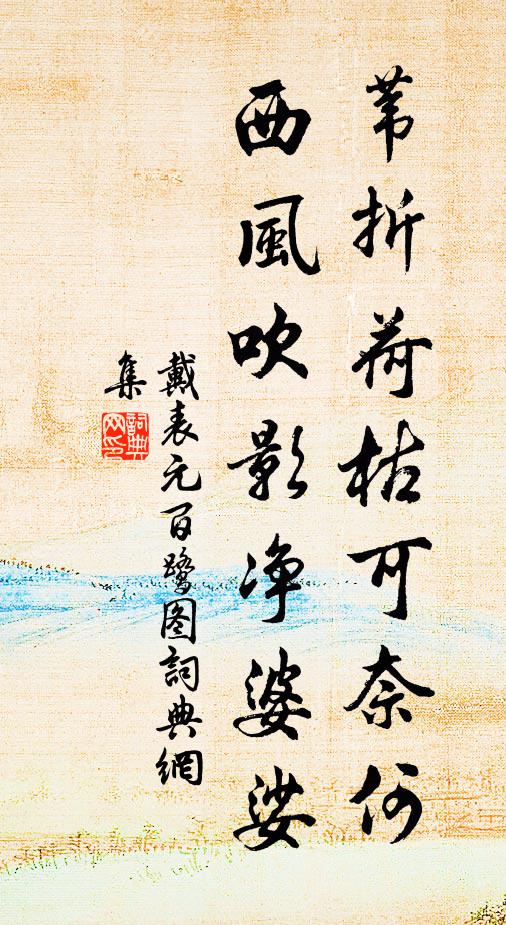 苇折荷枯可奈何
西風吹影净婆娑
戴表元百鹭图詞典網
集
詞典网印